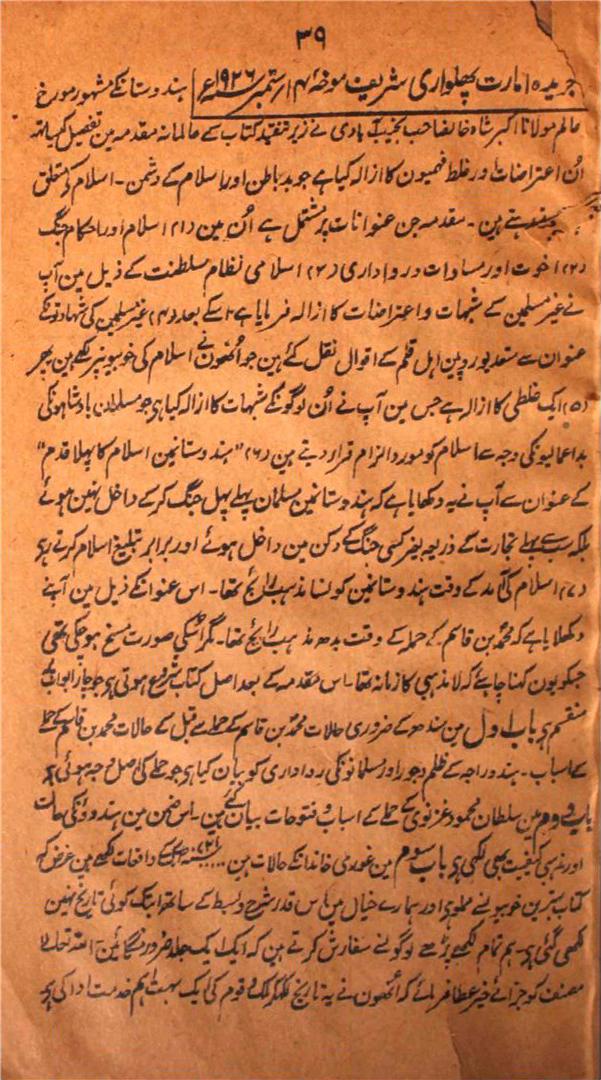 ۳۹
جریدہ امارت پھلواری شریف مورخہ ۱۴ ستمبر ۱۹۲۶ء ہندوستان کے مشہور مورخ
عالم مولانا اکبر شاہ خانصاحب نجیب آبادی نے زیر تنقید کتاب سے عالمانہ مقدمہ مین تفصیل کیساتھ
اُن اعتراضات اور غلط فہمیون کا ازالہ کیا ہے جو بد باطن اور اسلام کے دشمن۔ اسلام کے متعلق
ہین۔ مقدمہ جن عنوانات پر مشتمل ہے اُن مین (۱) اسلام اور احکام جنگ
(۲) اخوت اور مساوات و رواداری (۳) اسلامی نظام سلطنت کے ذیل مین آپ
نے غیر مسلمین کے شبہات و اعتراضات کا ازالہ فرمایا ہے اسکے بعد (۴) غیر مسلمین کی شہادتونکے
عنوان سے متعد یورپین اہل قلم کے اقوال نقل کئے ہین جو اُنھون نے اسلام کی خوبیونپر لکھے ہین پھر
(۵) ایک غلطی کا ازالہ ہے جس مین آپ نے اُن لوگونکے شبہات کا ازالہ کیا ہی جو مسلمان بادشاہونکی
بداعمالیونکی وجہ سے اسلام کو مورد الزام قرار دیتے ہین (۶) "ہندوستانمین اسلام کا پہلا قدم"
کے عنوان سے آپ نے یہ دکھایا ہے کہ ہندوستانمین مسلمان پہلے پہل جنگ کر کے داخل نہین ہوئے
بلکہ سب سے پہلے تجارت کے ذریعہ بغیر کسی جنگ کے دکن مین داخل ہوئے اور برابر تبلیغ اسلام کرتے رہی
(۷) اسلام کی آمد کے وقت ہندوستانمین کونسا مذہب رائج تھا۔ اس عنوانکے ذیل مین آپنے
دکھلایا ہے کہ محمد بن قاسم کے حملہ کے وقت بدھ مذہب رائج تھا۔ مگر اُسکی صورت مسخ ہو چکی تھی
جسکو یون کہنا چاہئے کہ لا مذہبی کا زمانہ تھا۔ اس مقدمہ کے بعد اصل کتاب شروع ہوتی ہی جو چار ابواب پر
منقسم ہی باب اول مین سندھ کے ضروری حالات محمد بن قاسم کے حملے سے قبل کے حالات محمد بن قاسم کے حملے
کے اسباب۔ ہندو راجہ کے ظلم و جور اور مسلمانونکی رواداری کو بیان کیا ہی جو حملے کی اصل وجہ ہوئی ہی
باب دوم مین سلطان محمود غزنوی کے حملے کے اسباب و فتوحات بیان کئے ہین۔ اس ضمن مین ہندوونکی حالت
اور مذہبی کیفیت بھی لکھی ہی باب سوم مین غوری خاندانکے حالات ہین ..... کے واقعات لکھے ہین غرض کہ
کتاب بہترین خوبیونسے مملو ہی اور ہمارے خیال مین اس قدر شرح و بسط کے ساتھ ابتک کوئی تاریخ نہین
لکھی گئی ہی۔ ہم تمام لکھے پڑھے لوگونسے سفارش کرتے ہین کہ ایک ایک جلد ضرور منگائین۔ اللہ تعالےٰ
مصنف کو جزائے خیر عطا فرمائے کہ اُنھون نے یہ تاریخ لکھکر ملک و قوم کی ایک بہت اہم خدمت ادا کی ہی